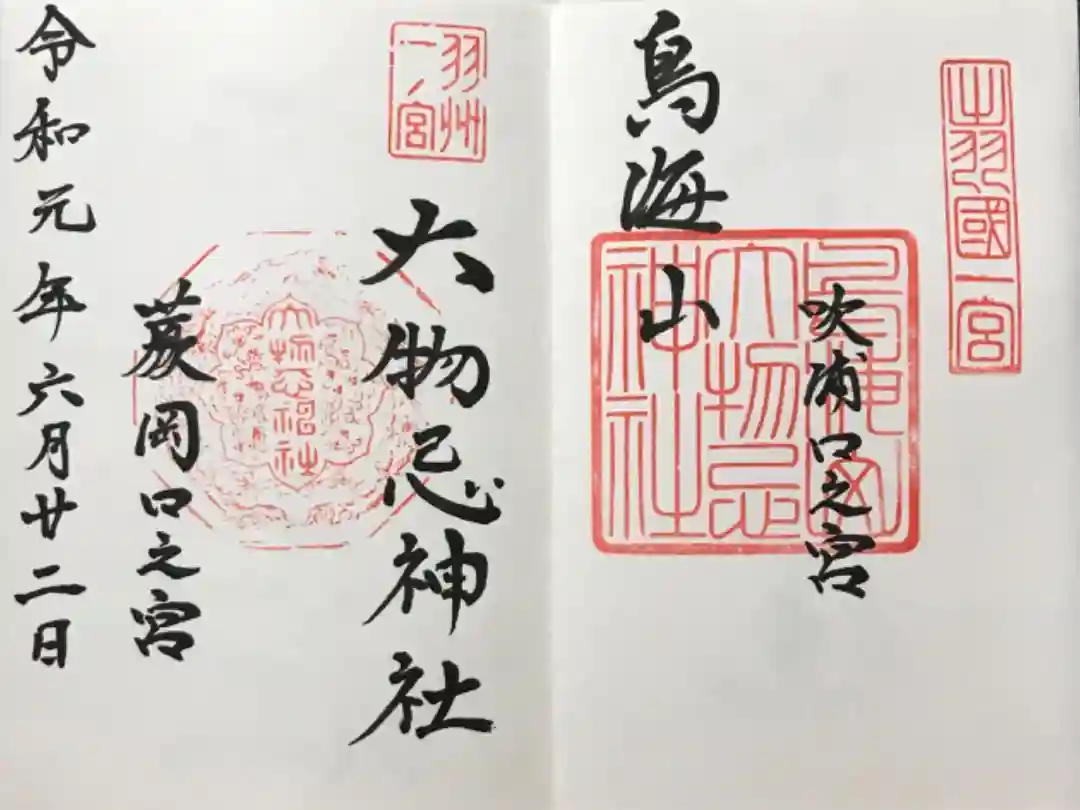 出羽國一宮
吹浦口之宮
鳥海山
鳥海山
大物忌
神社
羽州
一ノ宮
大物忌神社
大物忌神社
蕨岡口之宮
令和元年六月廿二日